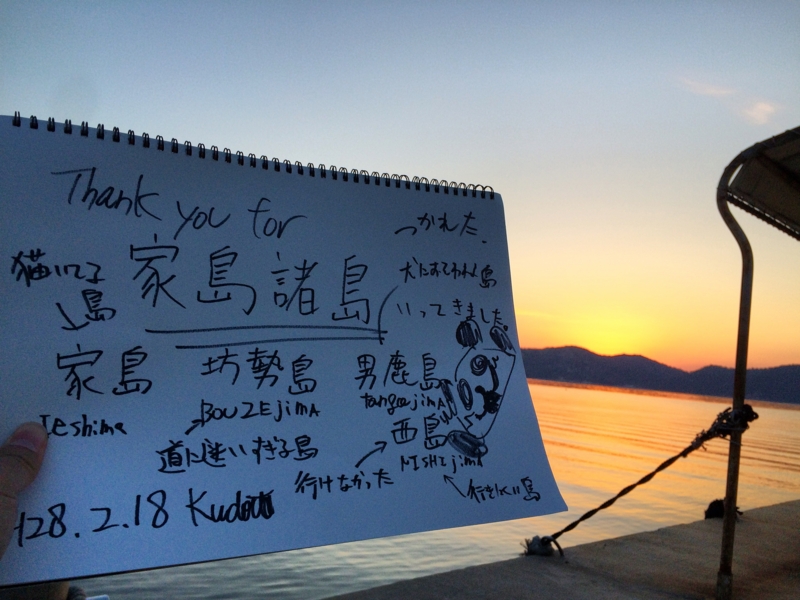 Thank you for
つかれた。
猫いてる
島
家島諸島
犬におそわれる島
いってきました。
家島
Ieshima
坊勢島
BOUZEjimA
道に迷いすぎる島
男鹿島
tangajimA
西島
NISHIjimA
行けなかった
島
H28.2.18 Kudo